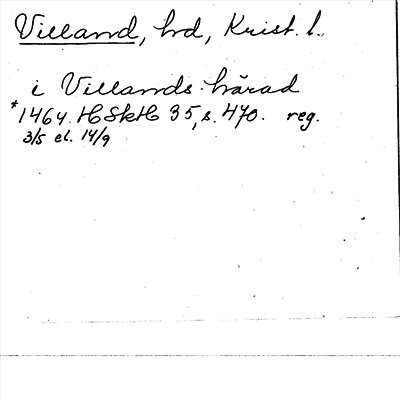 Villand, hd, Krist. l.
i Villands härad
*1464. HSkH 35, s. 470. reg.
3/5 el. 14/9